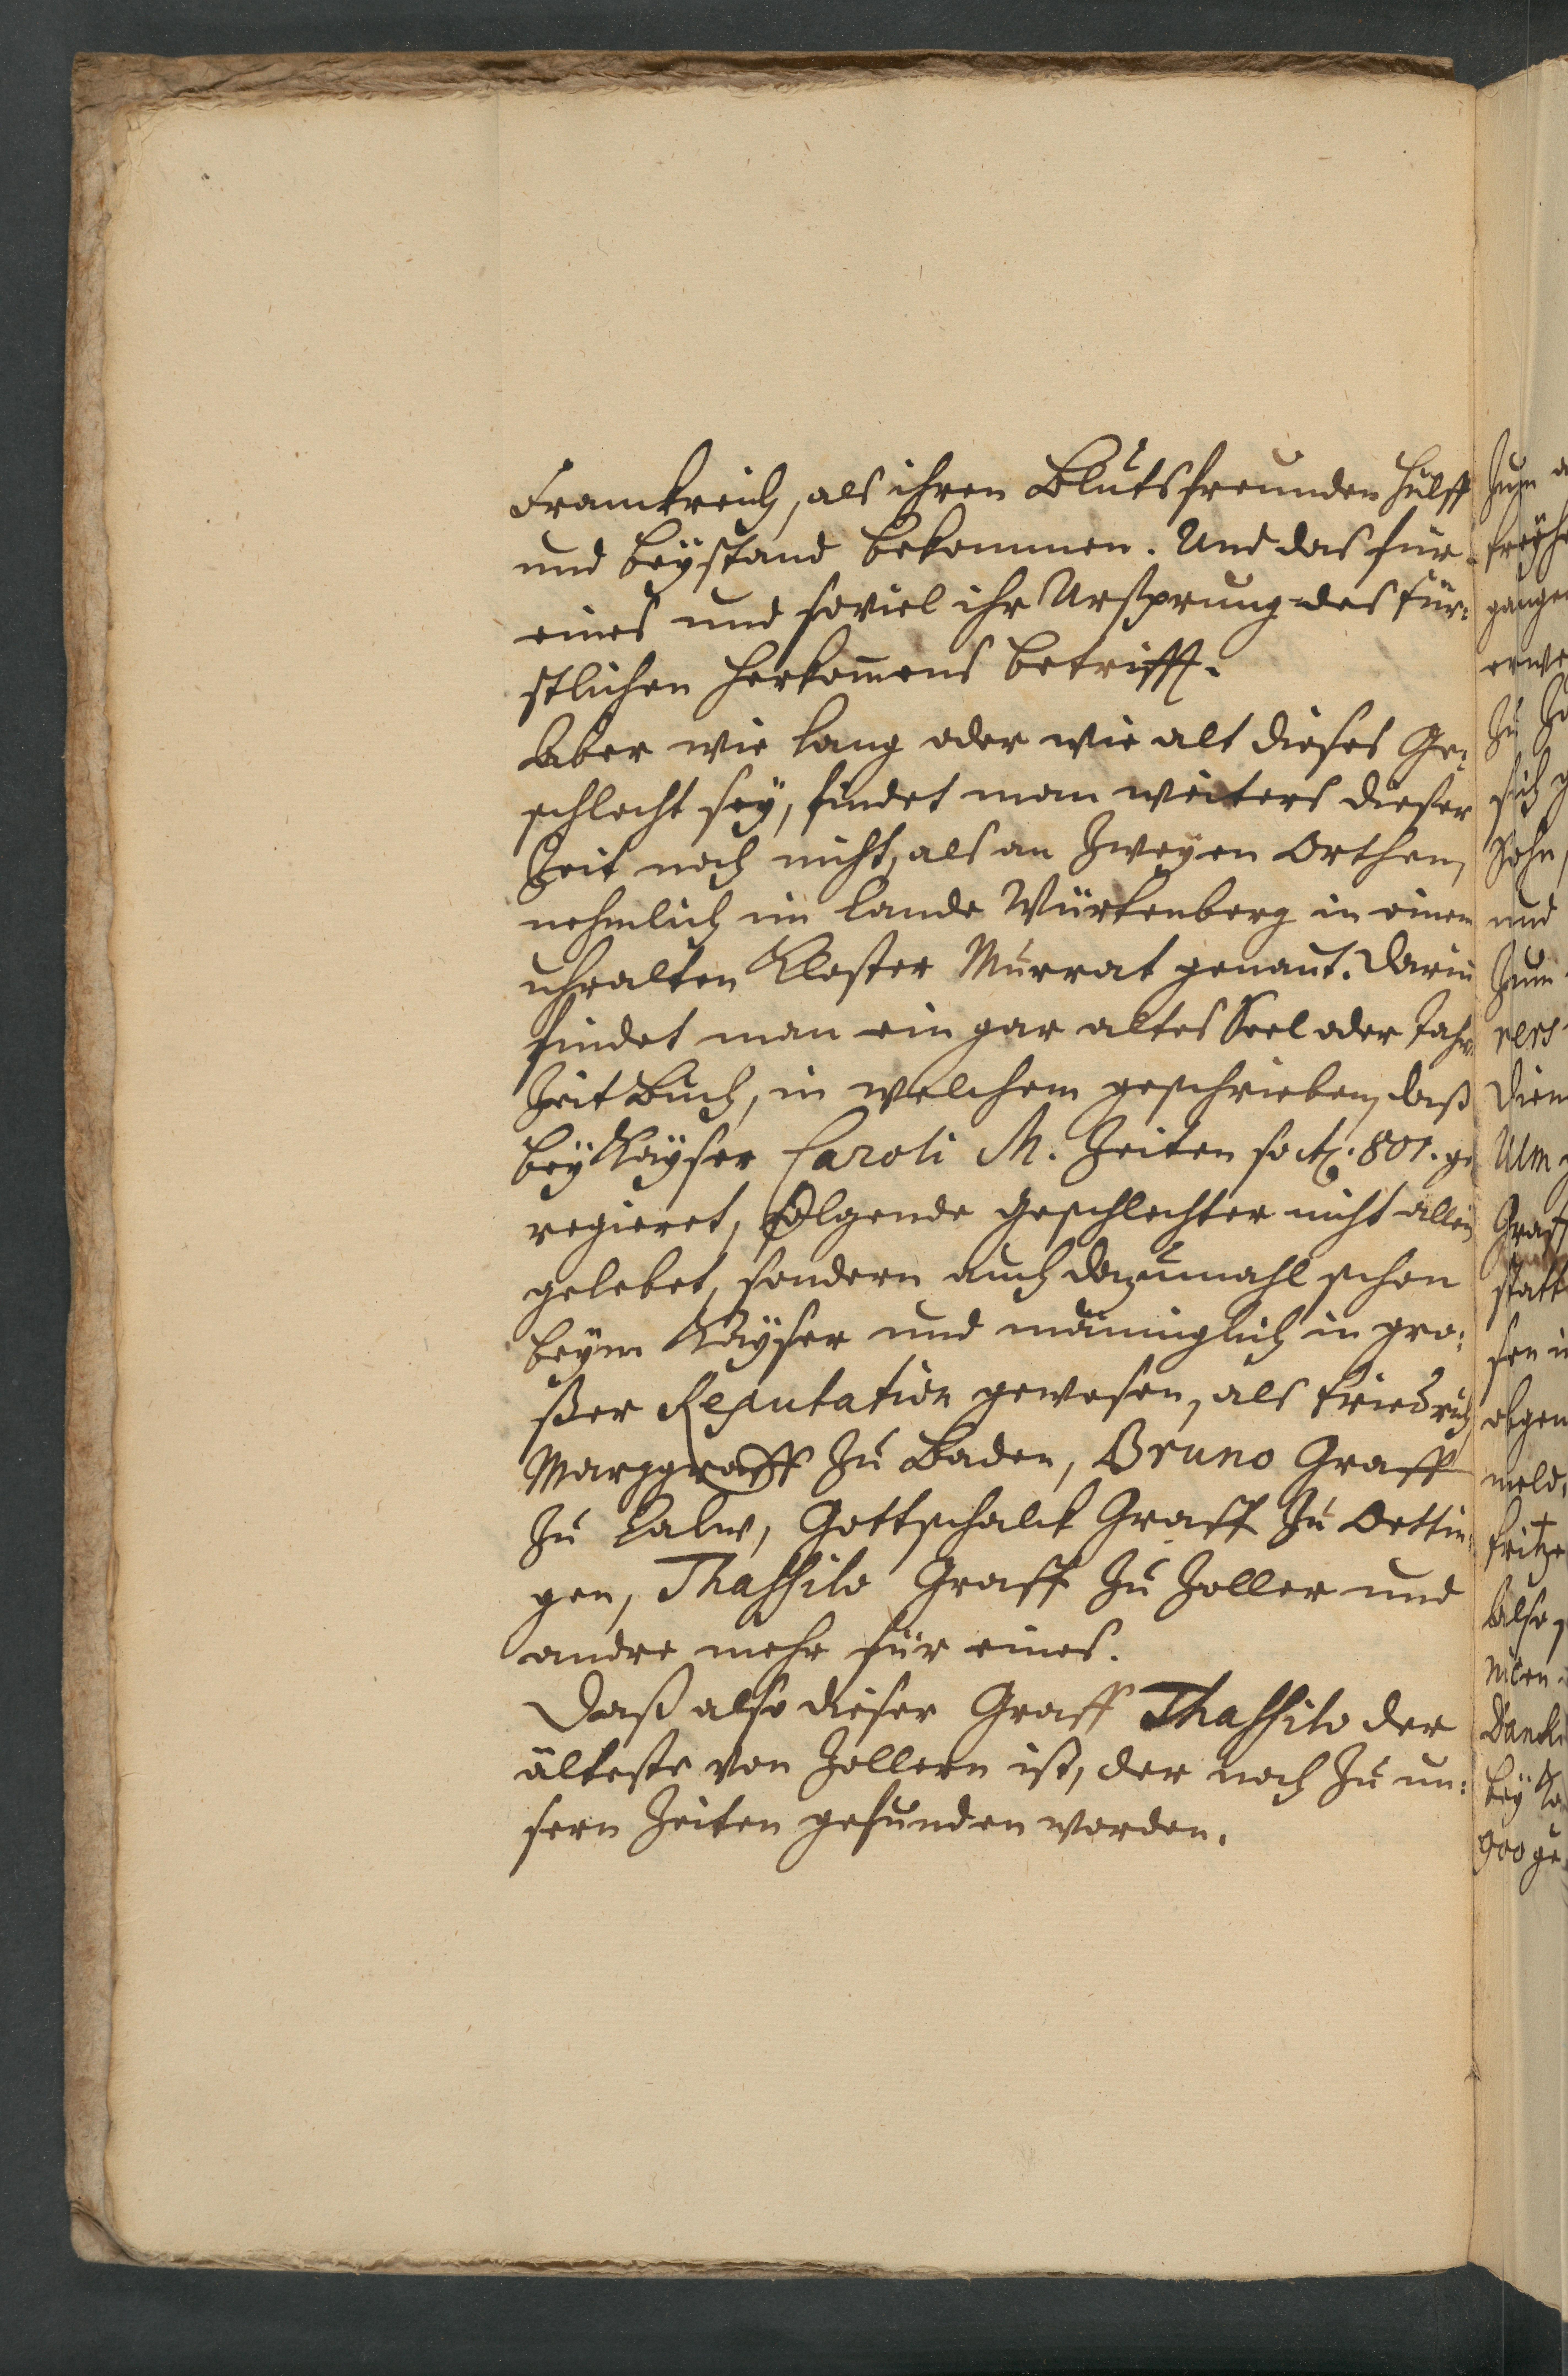 Franckreich, als ihren Blutsfreunden Hülff
und beÿstand bekommen. Und das für
eines und soviel ihr Ursprung des für:
stlichen Herkom̄ens betrifft.
Aber wie lang oder wie alt dieses Ge:
schlecht seÿ, findet man weiters dieser
Zeit noch nicht, als an Zweÿen Orthen,
nehmlich im Lande Würtenberg in einem
uhralten Kloster Murrat genañt. Darin̄
findet man ein gar altes Seel oder Jahr
Zeit Buch, in welchem geschrieben, daß
beÿ Kaÿser Caroli M. Zeiten so Aõ. 801. ge
regieret, folgende Geschlechter nicht allein
gelebet, sondern auch dazumahl schon
beÿm Kaÿser und männiglich in gro:
ßer Reputation gewesen, als Friedrich
Marggraff zu Baden, Bruno Graff
zu Calw, Gottschalck Graff zu Oettin:
gen, Thassilo Graff zu Zoller und
andre mehr für eines.
Daß also dieser Graff Thassilo der
älteste von Zollern ist, der noch zu un:
sern Zeiten gefunden worden.
Zum
freÿhe
gangen
erwe
Zu Zo
sich g
Sohn,
und
Zum
vers
dien
Ulm
Graff
statt
sen
obgen
meld.
fritze
Also,
Danck
beÿ Ka
900 ge